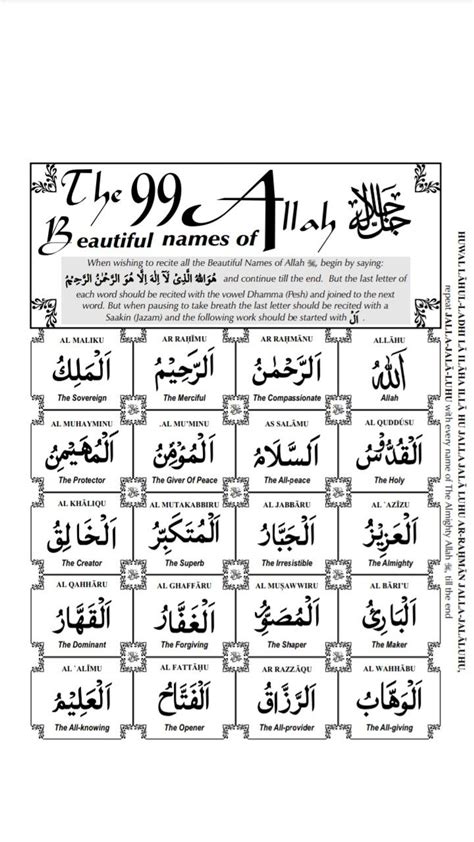 The 99 Beautiful names of Allah
جل جلاله
When wishing to recite all the Beautiful Names of Allah ﷻ, begin by saying:
هُوَاللهُ الَّذِىْ لَآ اِلٰهَ اِلَّا هُوَ الرَّحْمٰنُ الرَّحِيْمُ and continue till the end. But the last letter of
each word should be recited with the vowel Dhamma (Pesh) and joined to the next
word. But when pausing to take breath the last letter should be recited with a
Saakin (Jazam) and the following work should be started with اَلْ .
ALLÂHU
اَللهُ
Allah
AR RAḤMÂNU
اَلرَّحْمٰنُ
The Compassionate
AR RAḤÎMU
اَلرَّحِيْمُ
The Merciful
AL MALIKU
اَلْمَلِكُ
The Sovereign
AL QUDDÛSU
اَلْقُدُّوْسُ
The Holy
AS SALÂMU
اَلسَّلَامُ
The All-peace
AL MU'MINU
اَلْمُؤْمِنُ
The Giver Of Peace
AL MUHAYMINU
اَلْمُهَيْمِنُ
The Protector
AL 'AZÎZU
اَلْعَزِيْزُ
The Almighty
AL JABBÂRU
اَلْجَبَّارُ
The Irresistible
AL MUTAKABBIRU
اَلْمُتَكَبِّرُ
The Superb
AL KHÂLIQU
اَلْخَالِقُ
The Creator
AL BÂRI'U
اَلْبَارِئُ
The Maker
AL MUṢAWWIRU
اَلْمُصَوِّرُ
The Shaper
AL GHAFFÂRU
اَلْغَفَّارُ
The Forgiving
AL QAHHÂRU
اَلْقَهَّارُ
The Dominant
AL WAHHÂBU
اَلْوَهَّابُ
The All-giving
AR RAZZÂQU
اَلرَّزَّاقُ
The All-provider
AL FATTÂḤU
اَلْفَتَّاحُ
The Opener
AL 'ALÎMU
اَلْعَلِيْمُ
The All-knowing
HUVAL LÂHUL-LADHÎ LÂ ILÂHA ILLÂ HU JALLA JALÂ LUHU AR-RAḤMÂN JALLA-JALÂLUHU,
repeat JALLA-JALÂ-LUHU with every name of The Almighty Allah ﷻ, till the end